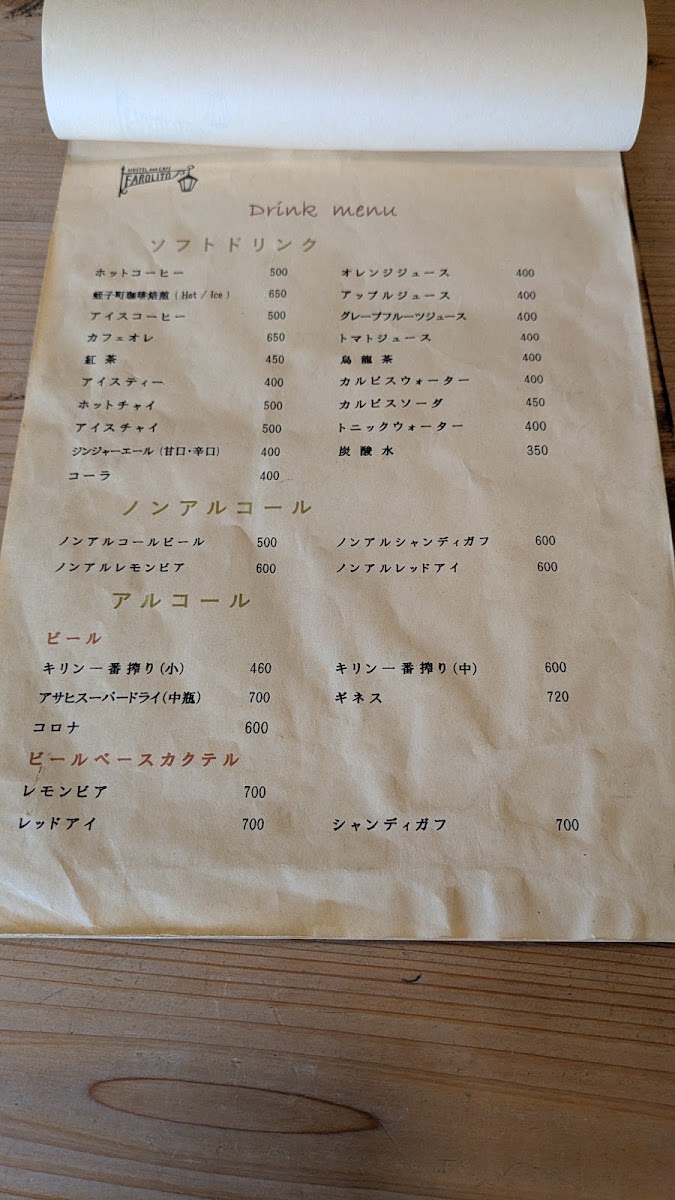 HOSTEL AND CAFE
FAROLITO
Drink menu
ソフトドリンク
ホットコーヒー 500 オレンジジュース 400
蛭子町珈琲焙煎 (Hot / Ice) 650 アップルジュース 400
アイスコーヒー 500 グレープフルーツジュース 400
カフェオレ 650 トマトジュース 400
紅茶 450 烏龍茶 400
アイスティー 400 カルピスウォーター 400
ホットチャイ 500 カルピスソーダ 450
アイスチャイ 500 トニックウォーター 400
ジンジャーエール (甘口・辛口) 400 炭酸水 350
コーラ 400
ノンアルコール
ノンアルコールビール 500 ノンアルシャンディガフ 600
ノンアルレモンビア 600 ノンアルレッドアイ 600
アルコール
ビール
キリン一番搾り(小) 460 キリン一番搾り(中) 600
アサヒスーパードライ(中瓶) 700 ギネス 720
コロナ 600
ビールベースカクテル
レモンビア 700
レッドアイ 700 シャンディガフ 700